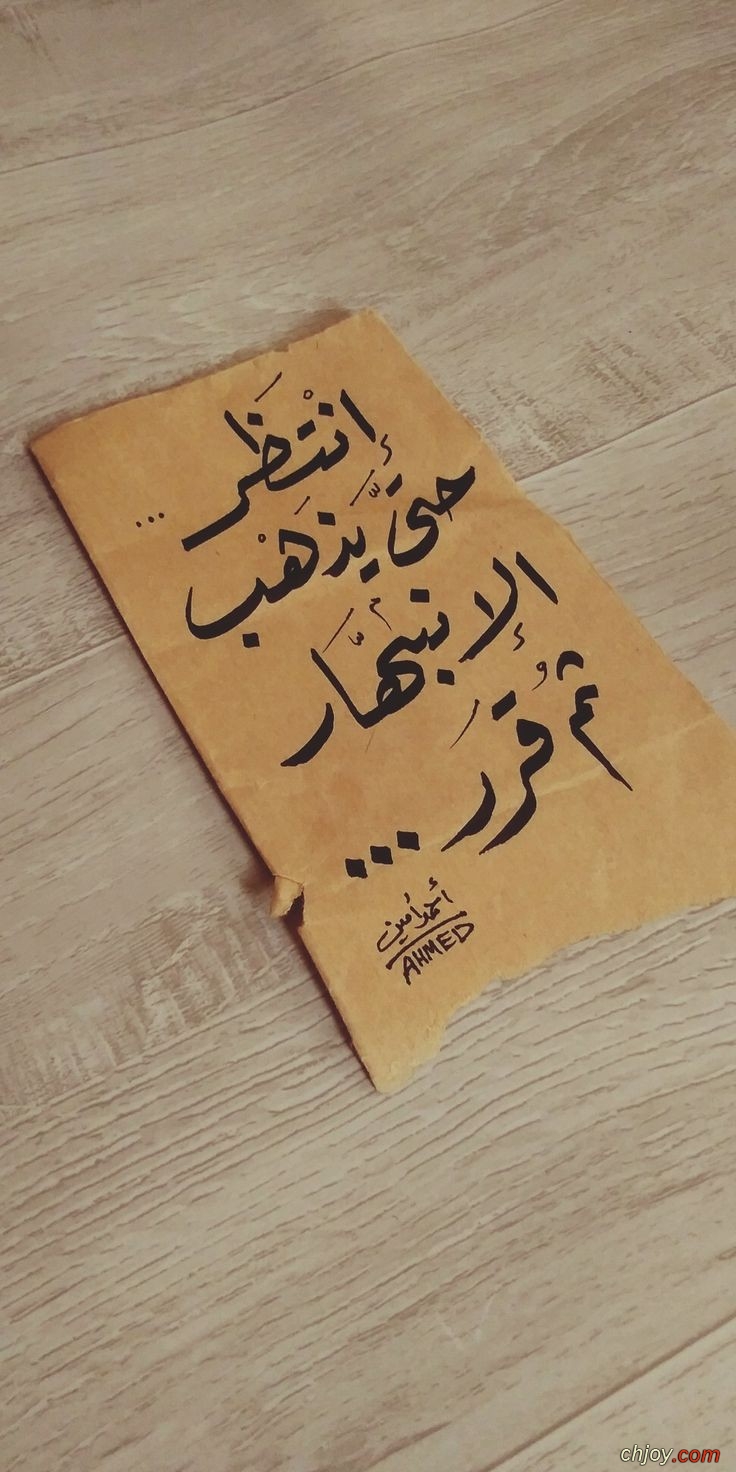 إنْتَظَر ...
حتىَّ يَذهَبْ
الإنبهَّار
ثم قُررَ ...
أحمد أمين
AHMED
chjoy.com